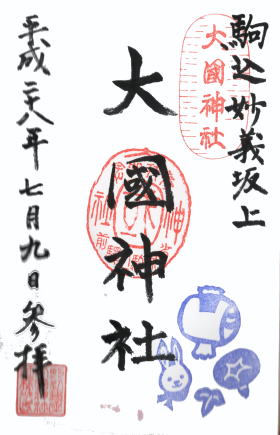 駒込妙義坂上
大國神社
大國神社
平成二十八年七月九日参拝